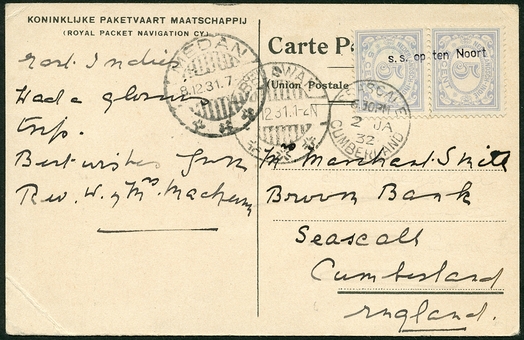 KONINKLIJKE PAKETVAART MAATSCHAPPIJ
(ROYAL PACKET NAVIGATION CY.)
East Indies
Had a
trip.
Best wishes from
Rev. W. & Mrs
Carte P
(Union Postale
s.s. op ten Noort
5
5
CENT
MEDAN
8.12.31.7
12.31.1-2N
SEASCALE
6.30PM
2 JA
32
CUMBERLAND
Marchant Smith
Brown Bank
Seascale
Cumberland
England.